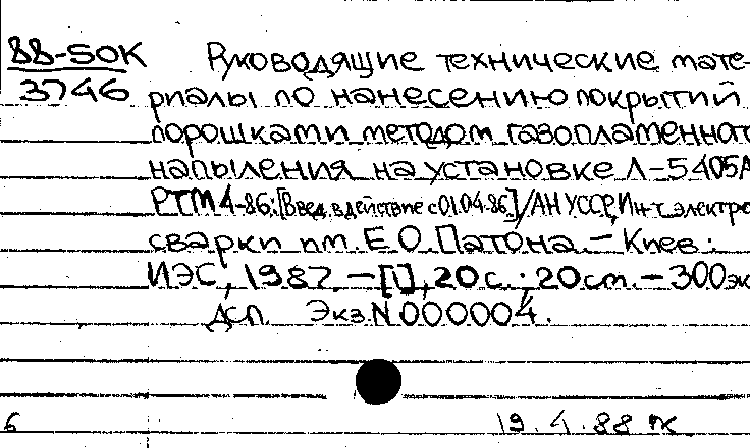 88-50К Руководящие технические мате-
3746 риалы по нанесению покрытий
порошками методом газопламенного
напыления на установке Л-5405А
РТМ 4-86: [Введ. в действие с 01.04.86.]/АН УССР, Ин-т электро
сварки им. Е.О. Патона. – Киев:
ИЭС, 1987. – [1], 20 с.; 20 см. – 300 эк
ДСП Экз. N 000004.
6 19.4.88